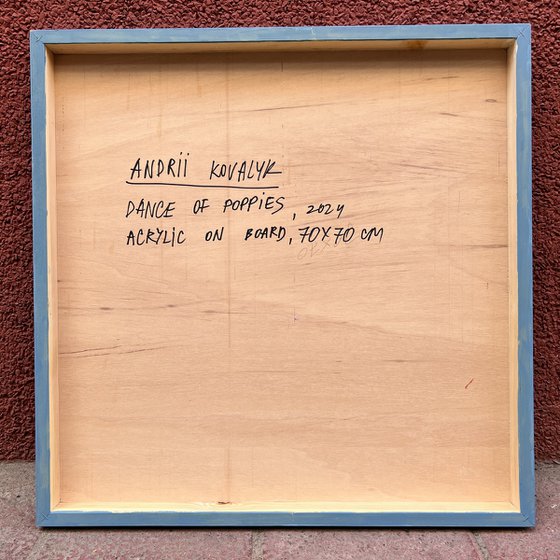 ANDRii KOVALYK
DANCE OF POPPIES, 2024
ACRYLIC ON BOARD, 70X70 CM